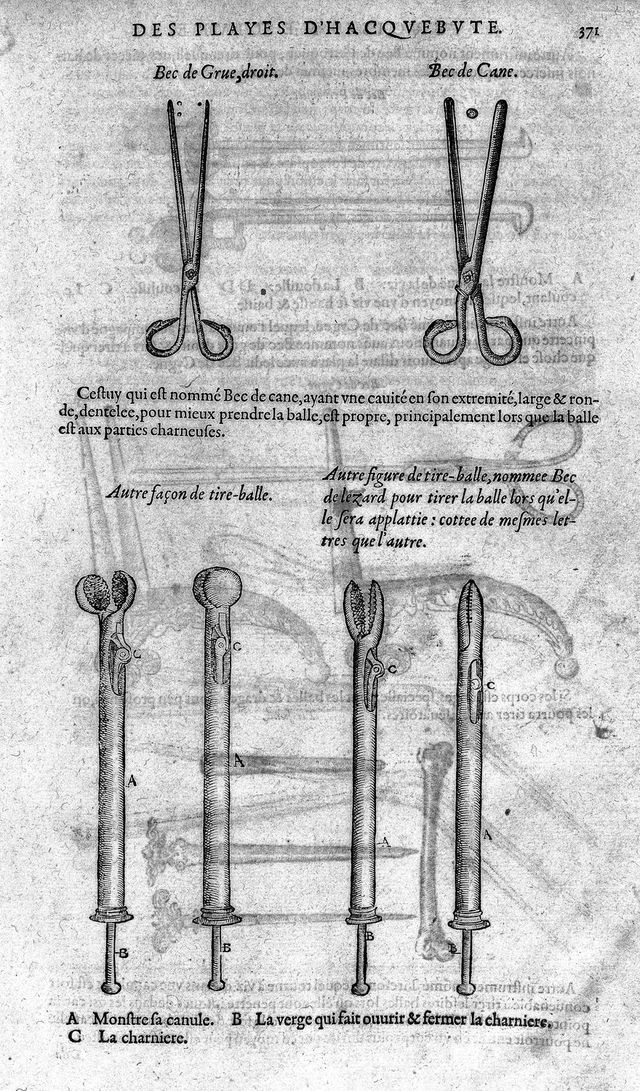 DES PLAYES D'HACQVEBVTE. 371
Bec de Grue, droit. Bec de Cane.
Cestuy qui est nommé Bec de cane, ayant vne cauité en son extremité, large & ron-
de, dentelee, pour mieux prendre la balle, est propre, principalement lors que la balle
est aux parties charneuses.
Autre façon de tire-balle.
Autre figure de tire-balle, nommee Bec
de lezard pour tirer la balle lors qu'el-
le sera applattie : cottee de mesmes let-
tres que l'autre.
C
C
C
C
A
A
A
A
B
B
B
B
A Monstre sa canule. B La verge qui fait ouurir & fermer la charniere.
C La charniere.